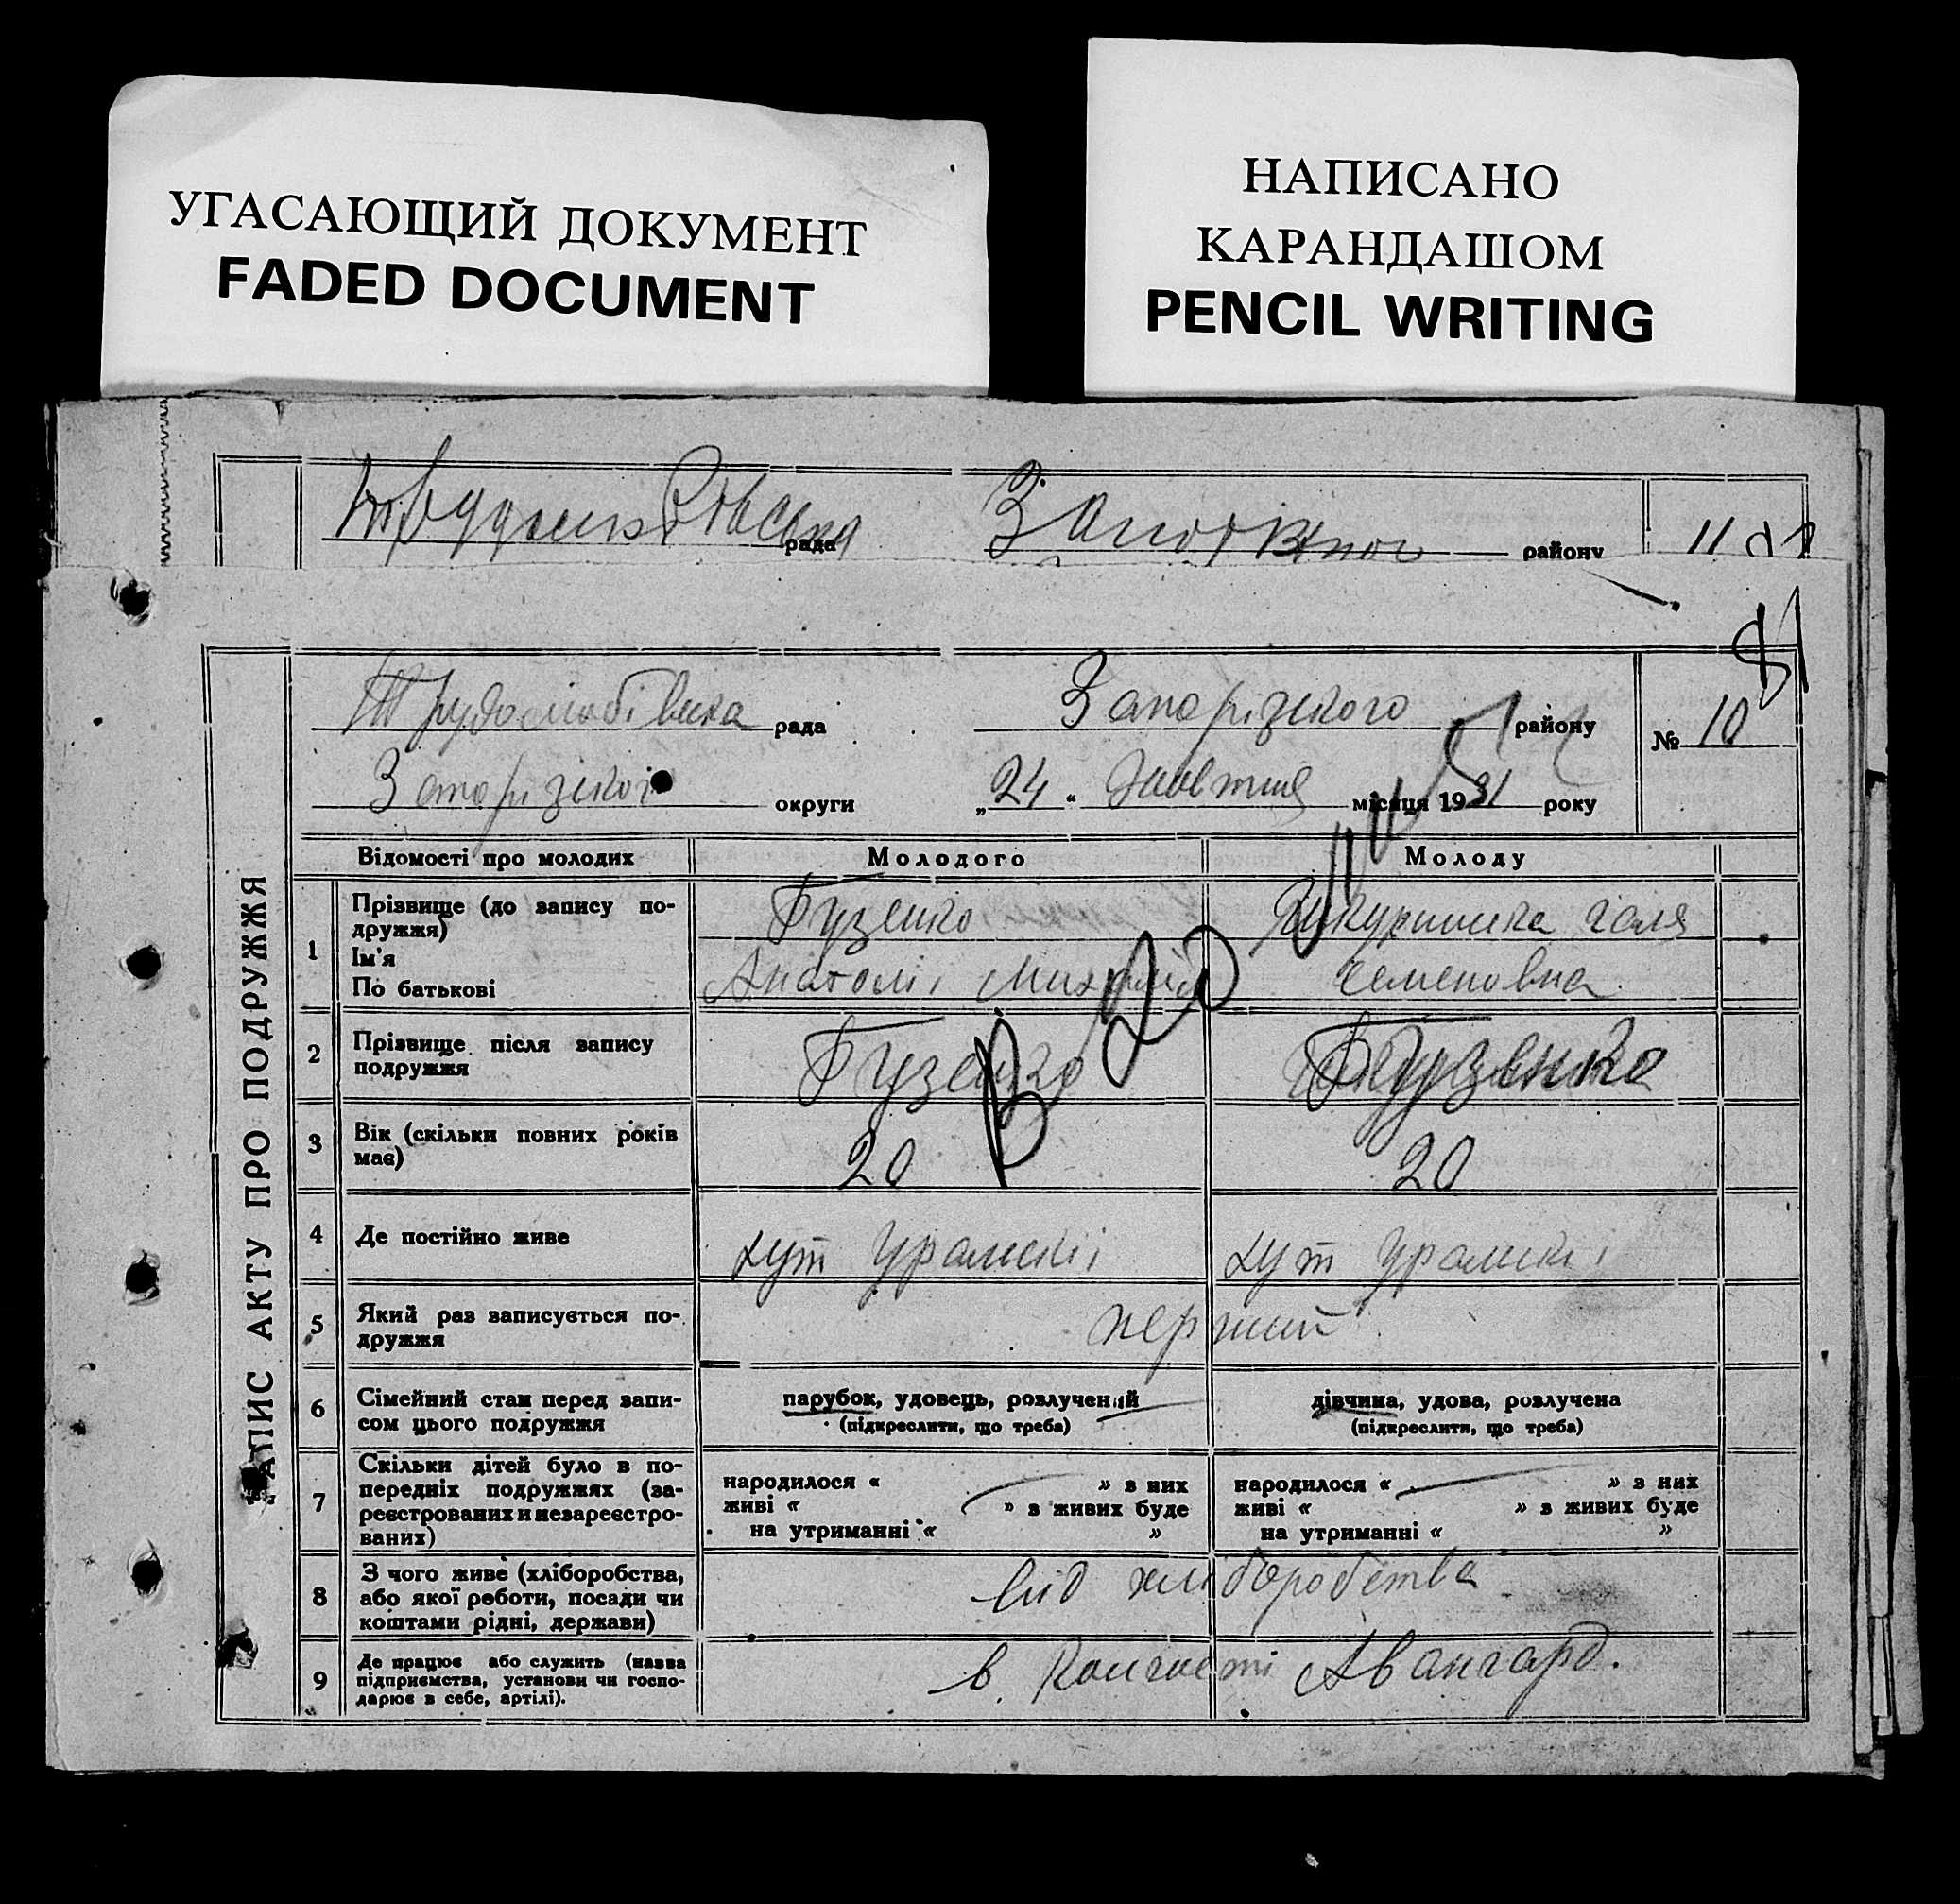 УГАСАЮЩИЙ ДОКУМЕНТ
FADED DOCUMENT
НАПИСАНО
КАРАНДАШОМ
PENCIL WRITING
рада району 11
81
ЗАПИС АКТУ ПРО ПОДРУЖЖЯ
Трудолюбівська рада Запорізького району № 10
Запорізької округи „24“ Жовтня місяця 1931 року
Відомості про молодих Молодого Молоду
1 Прізвище (до запису по-
дружжя)
Ім'я
По батькові
Гузенко
Анатолі
Галя
Семеновна
2 Прізвище після запису
подружжя
Гузенко Гузенко
3 Вік (скільки повних років
має)
20 20
4 Де постійно живе
хут хут
5 Який раз записується по-
дружжя
перший
6 Сімейний стан перед запи-
сом цього подружжя
парубок, удовець, розлучений
(підкреслити, що треба)
дівчина, удова, розлучена
(підкреслити, що треба)
7 Скільки дітей було в по-
передніх подружжях (за-
реєстрованих и незареєстро-
ваних)
народилося « » з них
живі « » з живих буде
на утриманні « »
народилося « » з них
живі « » з живих буде
на утриманні « »
8 З чого живе (хліборобства,
або якої роботи, посади чи
коштами рідні, держави)
від хліборобства
9 Де працює або служить (назва
підприємства, установи чи госпо-
дарює в себе, артілі).
в Колгоспі Авангард.